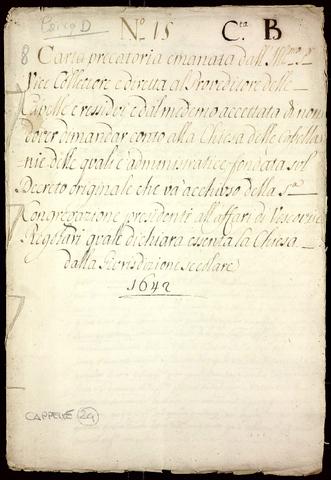 Corço D
Nº 15 Cta B
8 Carta precatoria emanata dall' Illmo Sr
Vice Collettore e diretta al Proveditore delle
Capelle e residoi e dal medemo accettata di non
dover dimandar conto alla Chiesa delle Cappella-
nie delle quali è administratice, fondata sul
Decreto originale che va accluso della Sra
Congregazione presidenti all' affari di Vescovi e
Regolari quale dichiara essenta la Chiesa
dalla Giurisdizione secolare
1642
CAPPELLE 29